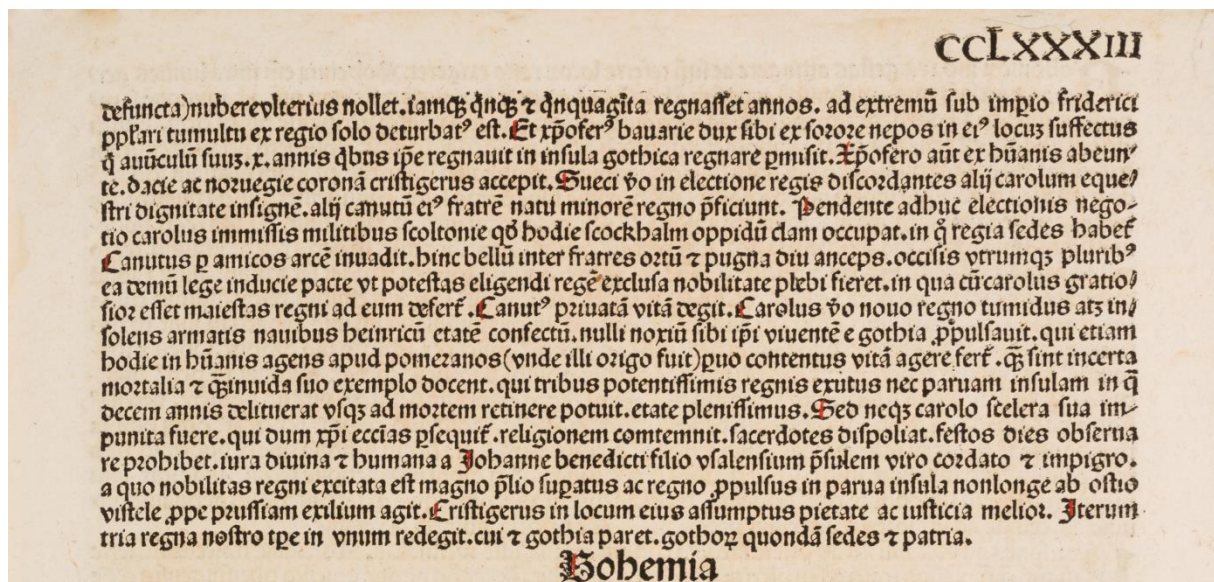 CCLXXXIII
defuncta)nubereulterius nollet.iamqꝫ qnqꝫ ⁊ qnquagīta regnasset annos. ad extremū sub impio friderici
pplari tumultu ex regio solo deturbatꝰ est. Et xp̄oferꝰ bauarie dux sibi ex sorore nepos in eiꝰ locuꝫ suffectus
q̄ auūculū suuꝫ.x.annis qbus ip̄e regnauit in insula gothica regnare ꝑmisit. Xp̄ofero aūt ex hūanis abeun⸗
te.dacie ac noruegie coronā cristigerus accepit. Sueci v̄o in electione regis discordantes alij carolum eque⸗
stri dignitate insignē.alij canutū eiꝰ fratrē natū minorē regno p̄ficiunt. Pendente adhuc electionis nego⸗
tio carolus immissis militibus scoltonie qd̄ hodie scockhalm oppidū clam occupat.in q̄ regia sedes habet̄
Canutus ꝑ amicos arcē inuadit.hinc bellū inter fratres ortū ⁊ pugna diu anceps.occisis vtrumqꝫ pluribꝰ
ea demū lege inducie pacte vt potestas eligendi regē exclusa nobilitate plebi fieret.in qua cū carolus gratio⸗
sior esset maiestas regni ad eum defert̄. Canutꝰ priuatā vitā degit. Carolus v̄o nouo regno tumidus atꝫ in⸗
solens armatis nauibus heinricū etatē confectū.nulli noxiū sibi ip̄i viuentē e gothia ꝓpulsauit.qui etiam
hodie in hūanis agens apud pomeranos(vnde illi origo fuit)puo contentus vitā agere fert̄. qꝫ̄ sint incerta
mortalia ⁊ qꝫ̄inuida suo exemplo docent.qui tribus potentissimis regnis exutus nec paruam insulam in q̄
decem annis delituerat vsqꝫ ad mortem retinere potuit.etate plenissimus. Sed neqꝫ carolo scelera sua im⸗
punita fuere.qui dum xp̄i ecc̄ias ꝑsequit̄.religionem comtemnit.sacerdotes dispoliat.festos dies obserua
re prohibet.iura diuina ⁊ humana a Johanne benedicti filio vsalensium p̄sulem viro cordato ⁊ impigro.
a quo nobilitas regni excitata est magno p̄lio suꝑatus ac regno ꝓpulsus in parua insula nonlonge ab ostio
vistele ꝓpe prussiam exilium agit. Cristigerus in locum eius assumptus pietate ac iusticia melior. Iterum
tria regna nostro tp̄e in vnum redegit.cui ⁊ gothia paret.gothoꝝ quondā sedes ⁊ patria.
Bohemia